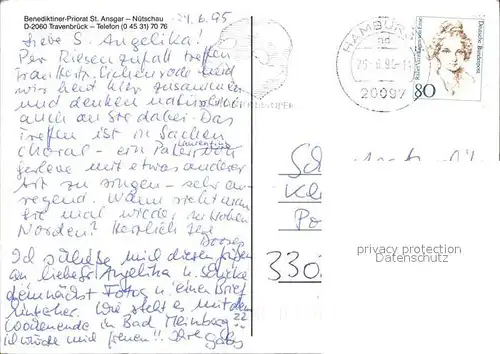 Benediktiner-Priorat St. Ansgar – Nütschau
D-2060 Travenbrück – Telefon (0 45 31) 70 76
24.6.95
Liebe S. Angelika!
Per Riesenzufall treffen
und
wir heut hier zusammen
und denken natürlich
auch an Sie dabei. Das
Treffen ist in Sachen
Choral – ein Pater
Laurentius
mit etwas anderer
Art zu singen – sehr an-
regend. Wann sieht man
Sie mal wieder im hohen
Norden? Herzlich Ihre
Ich schließe mich diesen Grüßen
an liebe Sr. Angelika u. schicke
demnächst Fotos u. einen Brief
hinterher. Wie steht es mit dem
Wochenende in Bad Meinberg??
Ich würde mich freuen!! Ihre Gaby
HAMBURG
20097
Deutsche Bundespost
80
330
privacy protection
Datenschutz